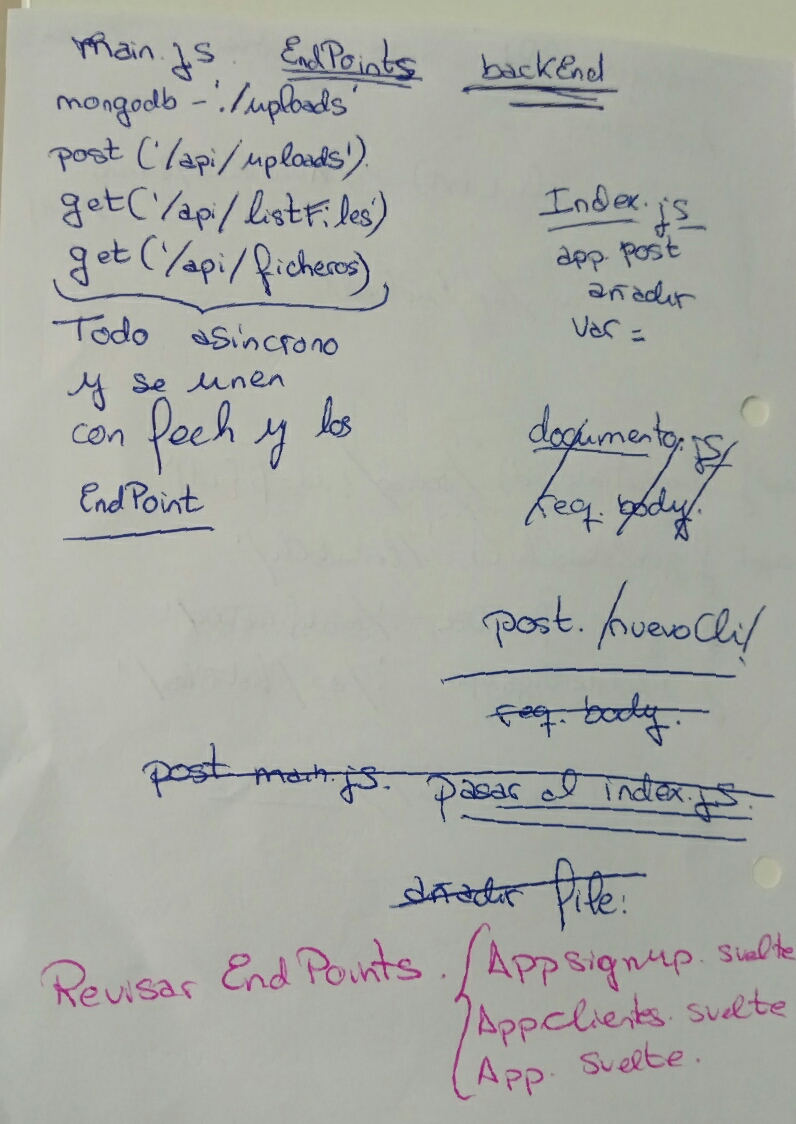 main.js. EndPoints backEnd
mongodb - './uploads'
post ('/api/uploads').
get('/api/listFiles')
get ('/api/ficheros)
Todo asincrono
y se unen
con fech y los
EndPoint
Index.js
app. post
añadir
var =
documento.js
req. body.
post. /nuevoCli/
req. body.
post main.js. pasar al index.js.
añadir file:
Revisar EndPoints.
Appsignup. svelte
Appclients. svelte
App. svelte.